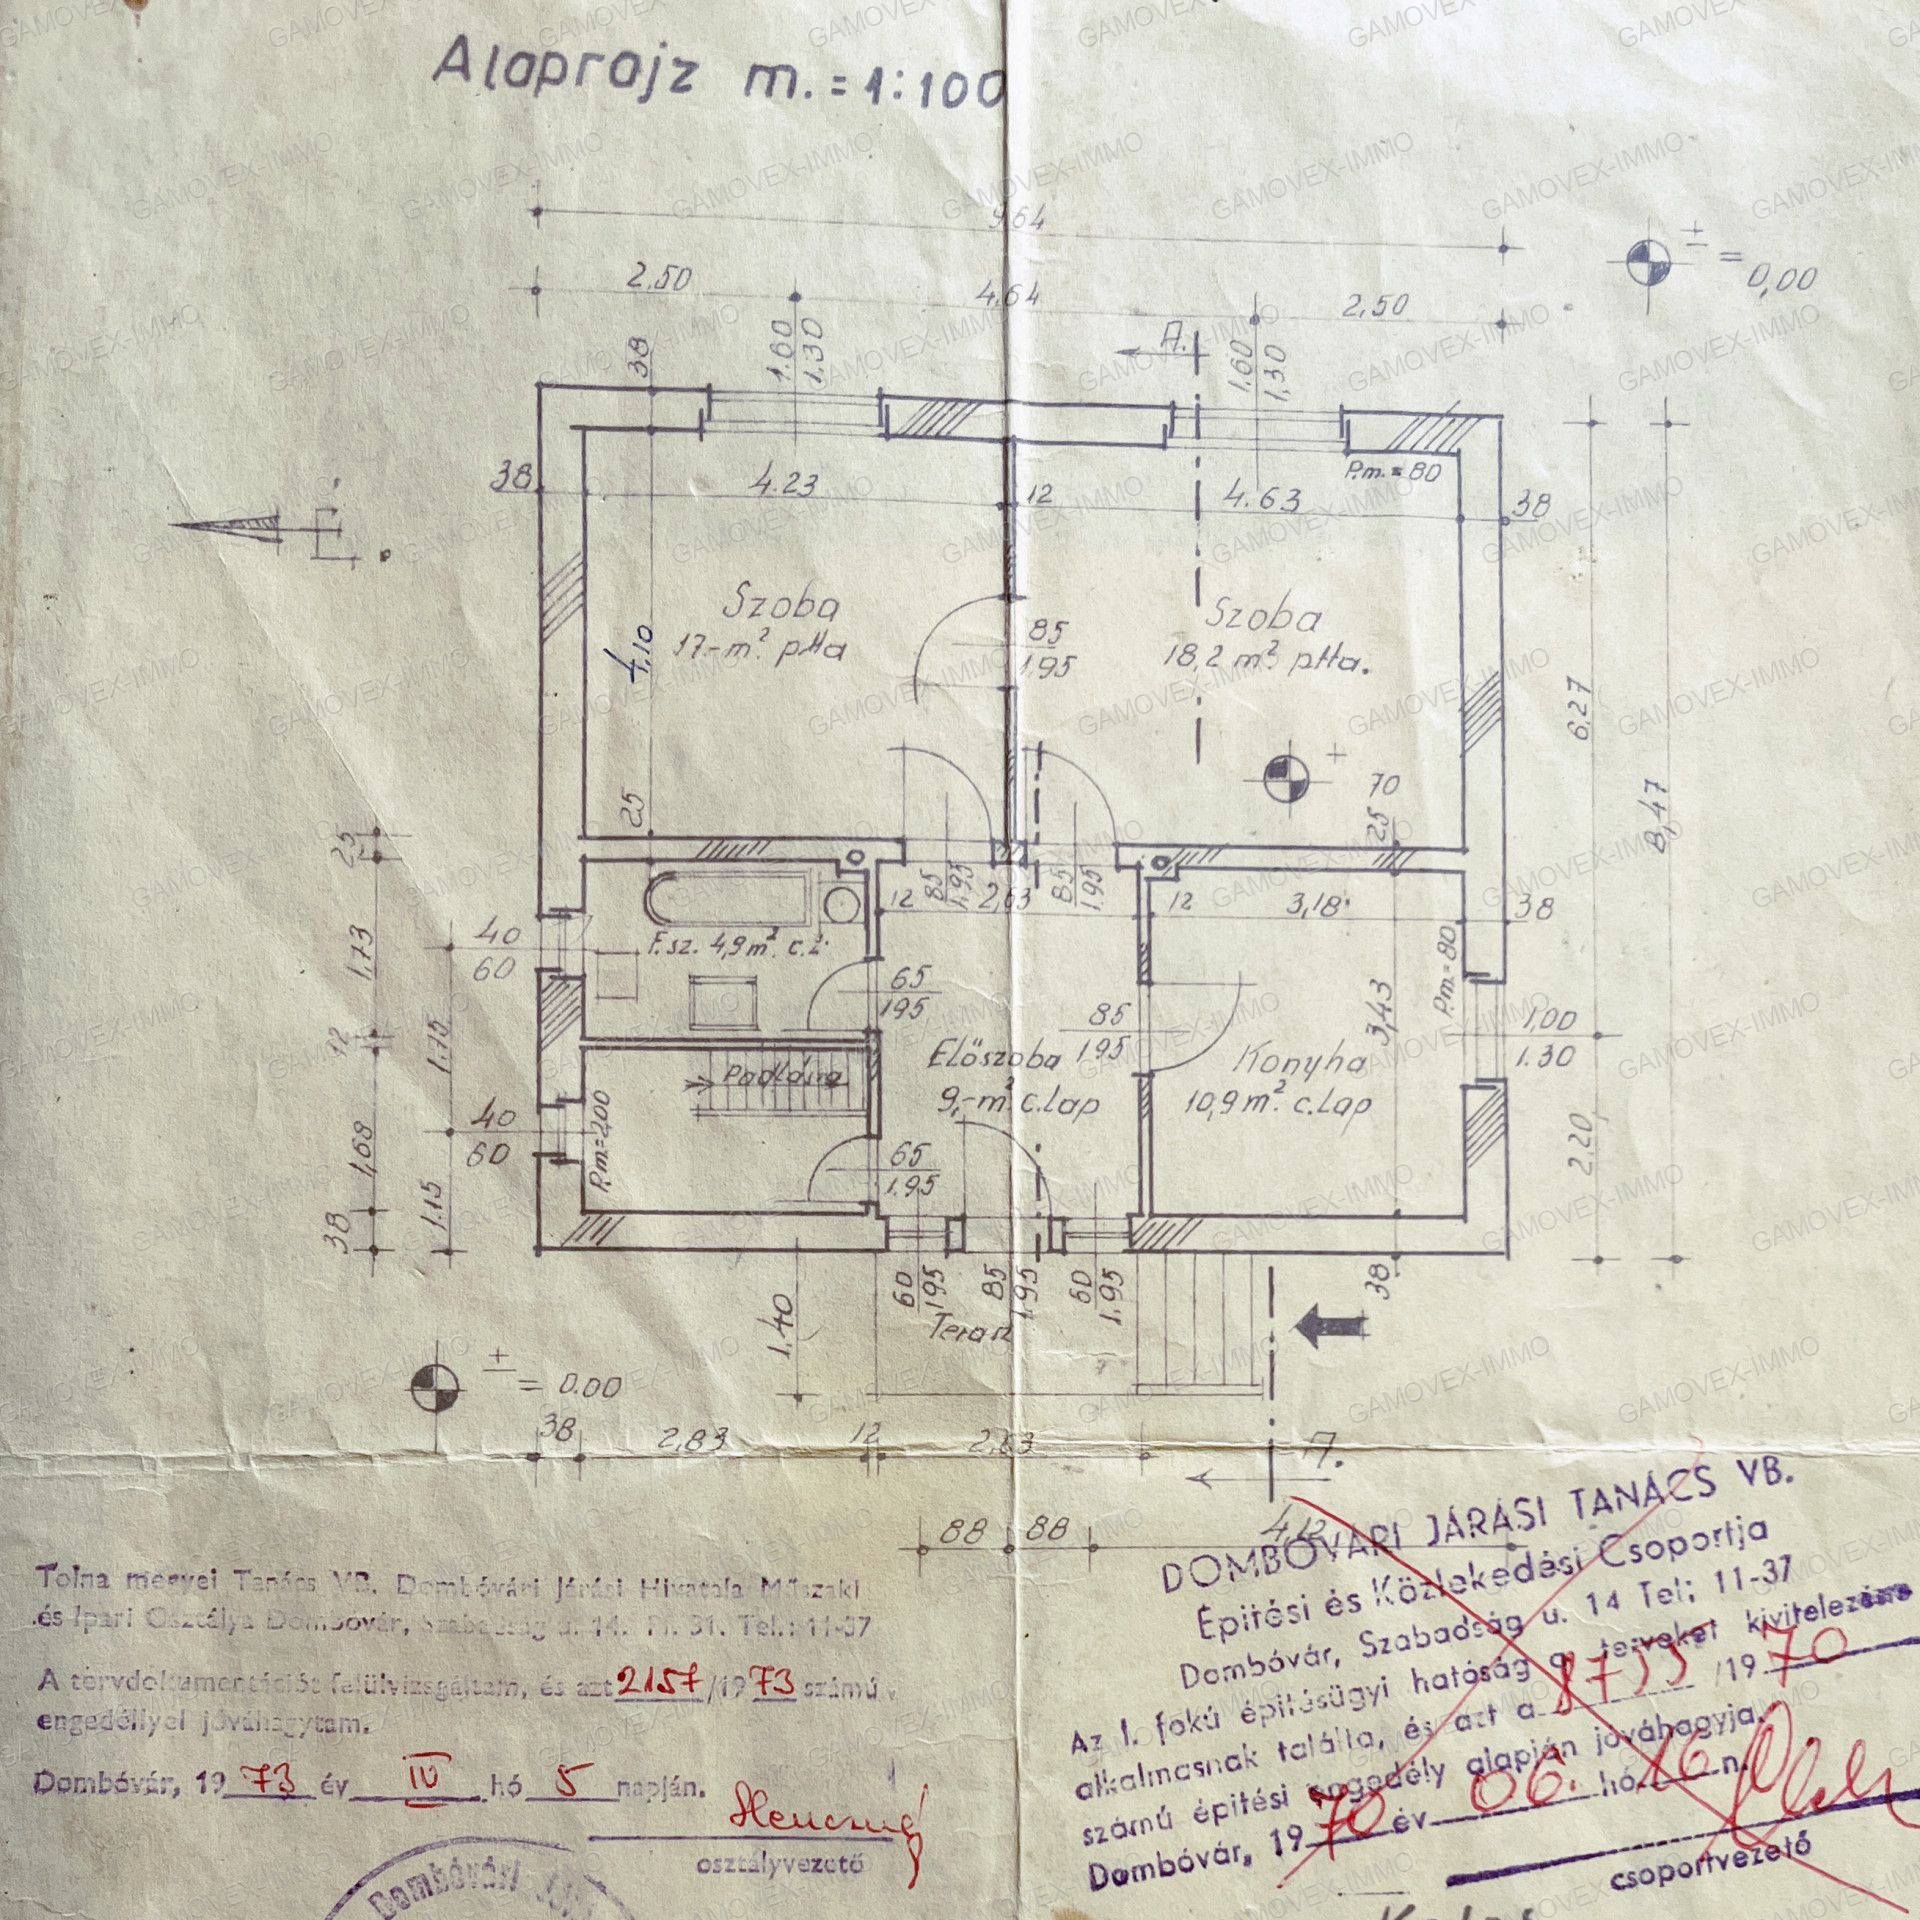 Alaprajz m. = 1:100
9,64
2,50
4,64
2,50
± = 0,00
38
1.60
1.30
A.
1.60
1,30
38
4.23
12
4.63
P.m. = 80
38
É.
Szoba
17.-m² ptta
4,10
85
1.95
Szoba
18,2 m² ptta.
6,27
8,47
+ 70
25
25
25
12
85
1.95
2,63
85
1.95
12
3,18
38
F.sz. 4,9 m². c.l.
40
60
1,73
65
195
85
195
3,43
P.m. = 80
1,00
1.30
12
1.15
Padlásra
Előszoba
9,-m² c.lap
Konyha
10,9 m². c.lap
40
60
P.m. = 200
1,68
65
1.95
2,20
1.15
38
60
1.95
85
1.95
60
1.95
38
1,40
Terasz
± = 0.00
38
2,83
12
2,63
A.
88
88
Tolna megyei Tanács VB. Dombóvári Járási Hivatala Műszaki
és Ipari Osztálya Dombóvár, Szabadság u. 14. Pf. 31. Tel.: 11-37
A tervdokumentációt felülvizsgáltam, és azt 2157/1973 számú
engedéllyel jóváhagytam.
Dombóvár, 1973 év IV hó 5 napján.
osztályvezető
Dombóvári
DOMBÓVÁRI JÁRÁSI TANÁCS VB.
Építési és Közlekedési Csoportja
Dombóvár, Szabadság u. 14 Tel: 11-37
Az I. fokú építésügyi hatóság a terveket kivitelezésre
alkalmasnak találta, és azt a /1970
számú építési engedély alapján jóváhagyja.
Dombóvár, 1970 év 06. hó 16 n.
csoportvezető
GAMOVEX-IMMO